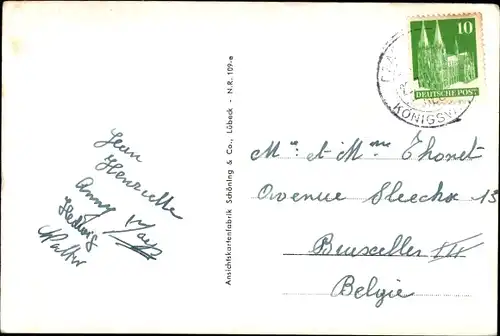 Jean
Henriette
Anny
Hedwig
Walter
Ansichtskartenfabrik Schöning & Co., Lübeck - N.R. 109-e
10
DEUTSCHE POST
KÖNIGSWI
Mr et Mme Thonet
Avenue Sleeckx 13
Bruxelles III
Belgie